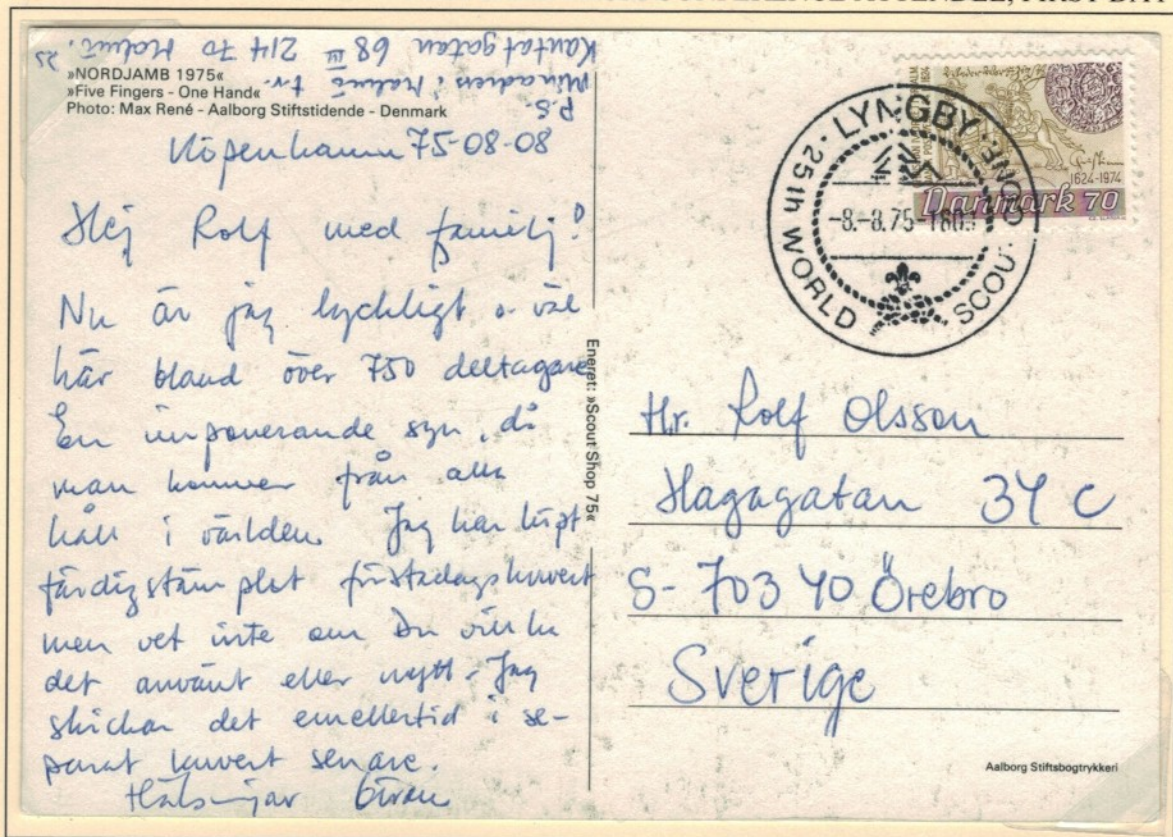 CONFERENCE ATTENDEE, FIRST DAY
»NORDJAMB 1975«
»Five Fingers - One Hand«
Photo: Max René - Aalborg Stiftstidende - Denmark
Köpenhamn 75-08-08
Hej Rolf med familj!
Nu är jag lyckligt o. väl
här bland över 750 deltagare
En imponerande syn, då
man kommer från alla
håll i världen. Jag har köpt
färdigstämplat förstadagskuvert
men vet inte om Du vill ha
det använt eller nytt. Jag
skickar det emellertid i se-
parat kuvert senare.
Hälsningar Göran
P.S.
Malmö t.v.
Kantatgatan 68 III 214 70 Malmö.
Eneret: »Scout Shop 75«
LYNGBY · 25th WORLD SCOUT CONF.
-8.-8.75-
1624-1974
Danmark 70
Hr. Rolf Olsson
Hagagatan 34 C
S-703 40 Örebro
Sverige
Aalborg Stiftsbogtrykkeri